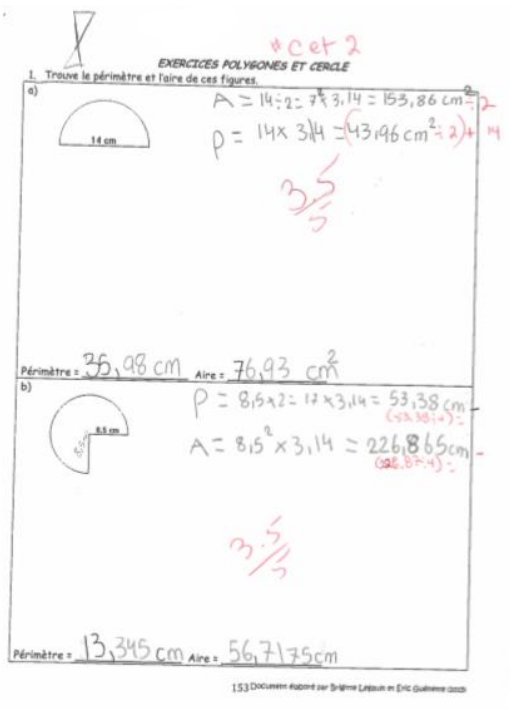 * C et 2
EXERCICES POLYGONES ET CERCLE
1. Trouve le périmètre et l'aire de ces figures.
a)
A = 14÷2= 7² × 3,14 = 153,86 cm² ÷2
P = 14 × 3,14 = (43,96 cm² ÷ 2) + 14
14 cm
3.5/5
Périmètre = 35,98 cm Aire = 76,93 cm²
b)
P = 8,5×2= 17 × 3,14 = 53,38 cm
(53,38÷4)=
8,5 cm
8,5cm
A = 8,5² × 3,14 = 226,865cm
(226,87÷4)=
3.5/5
Périmètre = 13,345 cm Aire = 56,7175cm
153 Document élaboré par Brigitte Legault et Éric Guénette